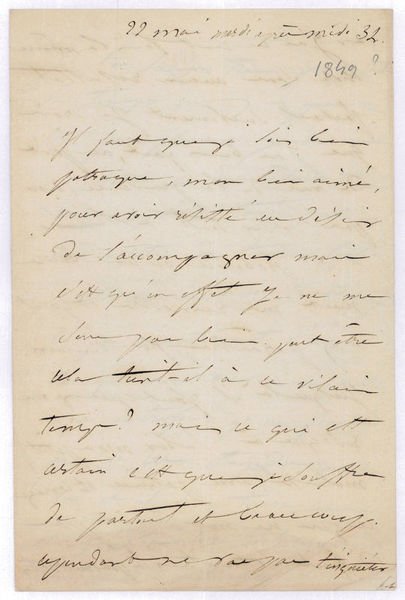 22 mai mardi après midi 3h.
1849 ?
Il faut que je sois bien
patraque, mon bien aimé,
pour avoir résisté au désir
de t'accompagner mais
c'est qu'en effet je ne me
sens pas bien. peut-être
cela tient-il à ce vilain
temps ? mais ce qui est
certain c'est que je souffre
de partout et beaucoup.
cependant ne va pas t'inquiéter